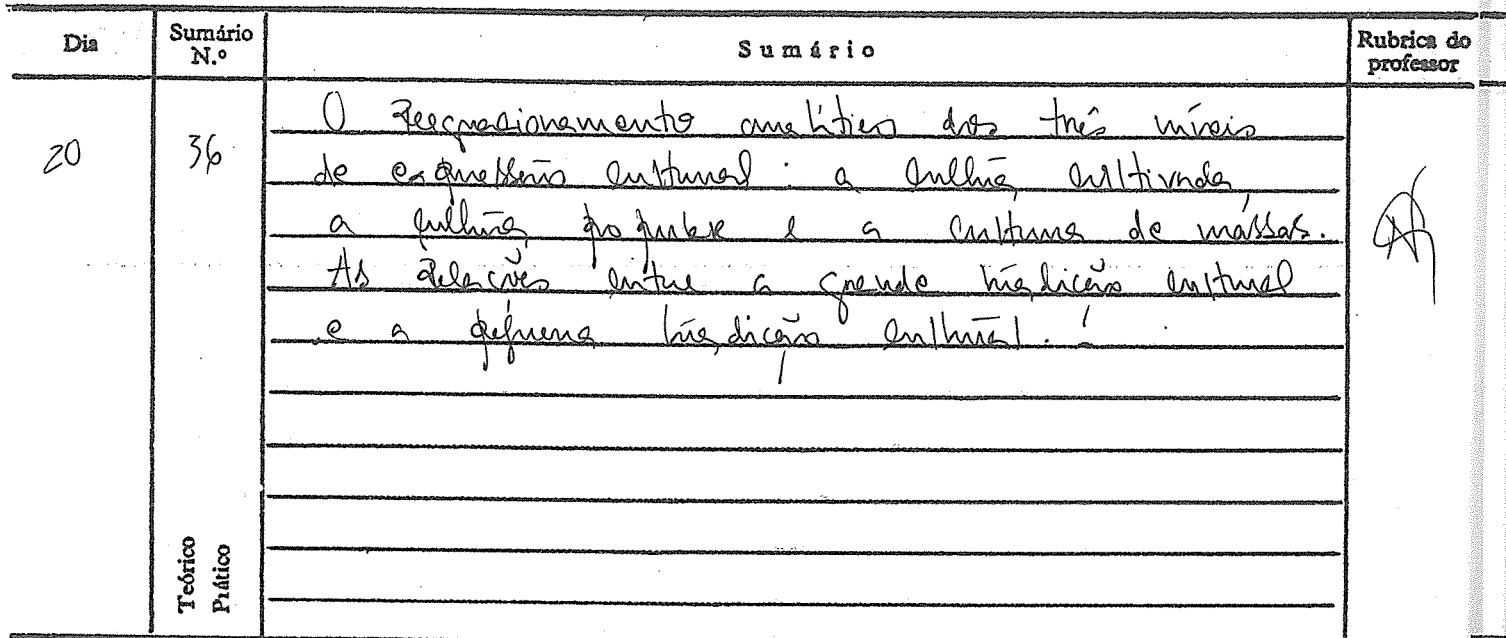 Dia
Sumário N.º
Sumário
Rubrica do professor
20
36
O reequacionamento analítico dos três níveis
de expressão cultural: a cultura cultivada,
a cultura popular e a cultura de massas.
As relações entre a grande tradição cultural
e a pequena tradição cultural.
Teórico
Prático